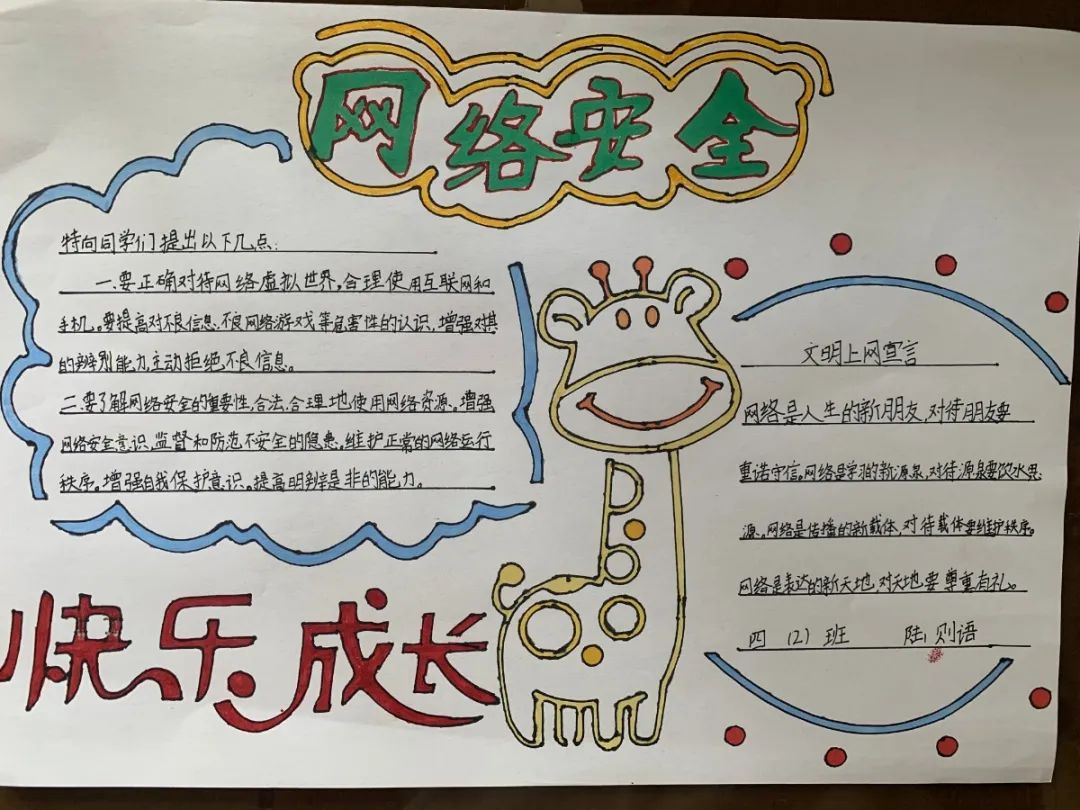 网络安全
特向同学们提出以下几点:
一.要正确对待网络虚拟世界。合理使用互联网和
手机。要提高对不良信息.不良网络游戏等危害性的认识,增强对其
的辨别能力,主动拒绝不良信息。
二.要了解网络安全的重要性,合法.合理地使用网络资源。增强
网络安全意识,监督和防范不安全的隐患,维护正常的网络运行
秩序。增强自我保护意识。提高明辨是非的能力。
快乐成长
文明上网宣言
网络是人生的新朋友,对待朋友要
重诺守信。网络是学习的新源泉,对待源泉要饮水思
源。网络是传播的新载体,对待载体要维护秩序。
网络是表达的新天地,对天地要尊重有礼。
四 (2) 班 陆则语